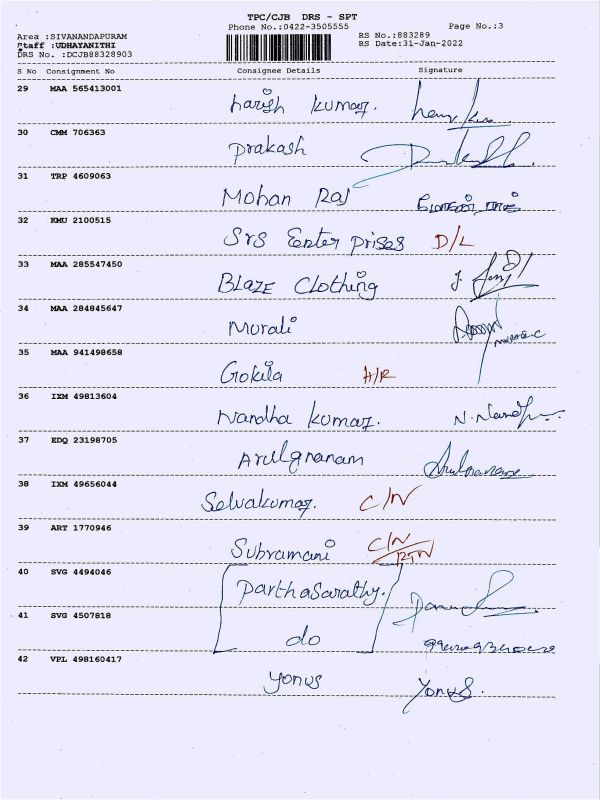 TPC/CJB DRS - SPT
Phone No.:0422-3505555 Page No.:3
Area :SIVANANDAPURAM RS No.:883289
Staff :UDHAYANITHI RS Date:31-Jan-2022
DRS No. :DCJB88328903
S No Consignment No Consignee Details Signature
29 MAA 565413001 harish kumar.
30 CMM 706363 prakash
31 TRP 4609063 Mohan Raj
32 KMU 2100515 Srs Enter prises D/L
33 MAA 285547450 BLAZE Clothing
34 MAA 284845647 Murali
35 MAA 941498658 Gokila H/R
36 IXM 49813604 Nandha kumar.
37 EDQ 23198705 Arulgnanam
38 IXM 49656044 Selvakumar. C/N
39 ART 1770946 Subramani C/N RTN
40 SVG 4494046 Parthasarathy.
41 SVG 4507818 do
42 VPL 498160417 Yonus Yonus.